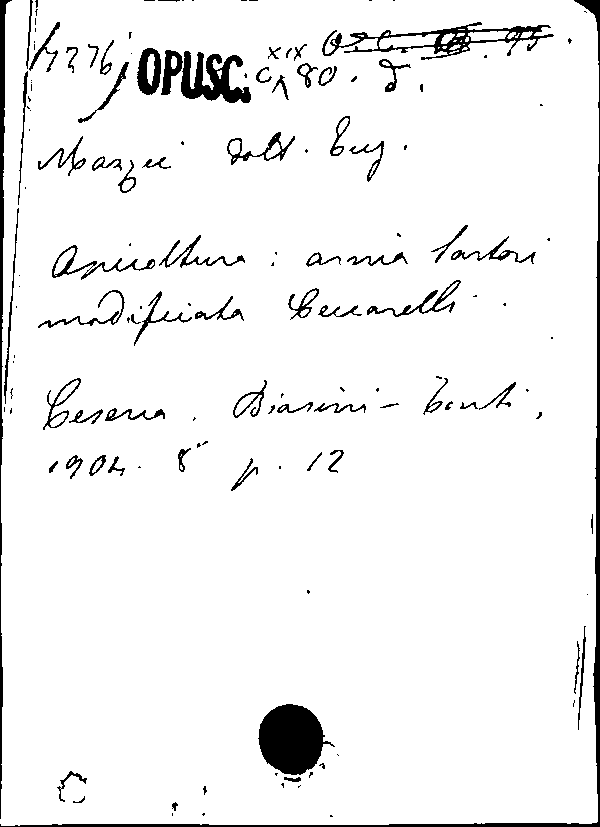 17276
OPUSC. C XIX 80. d.
Mazzei dott. Eug.
Apicoltura: arnia Sartori
modificata Ceccarelli.
Cesena. Biasini-Tonti,
1904. 8° p. 12